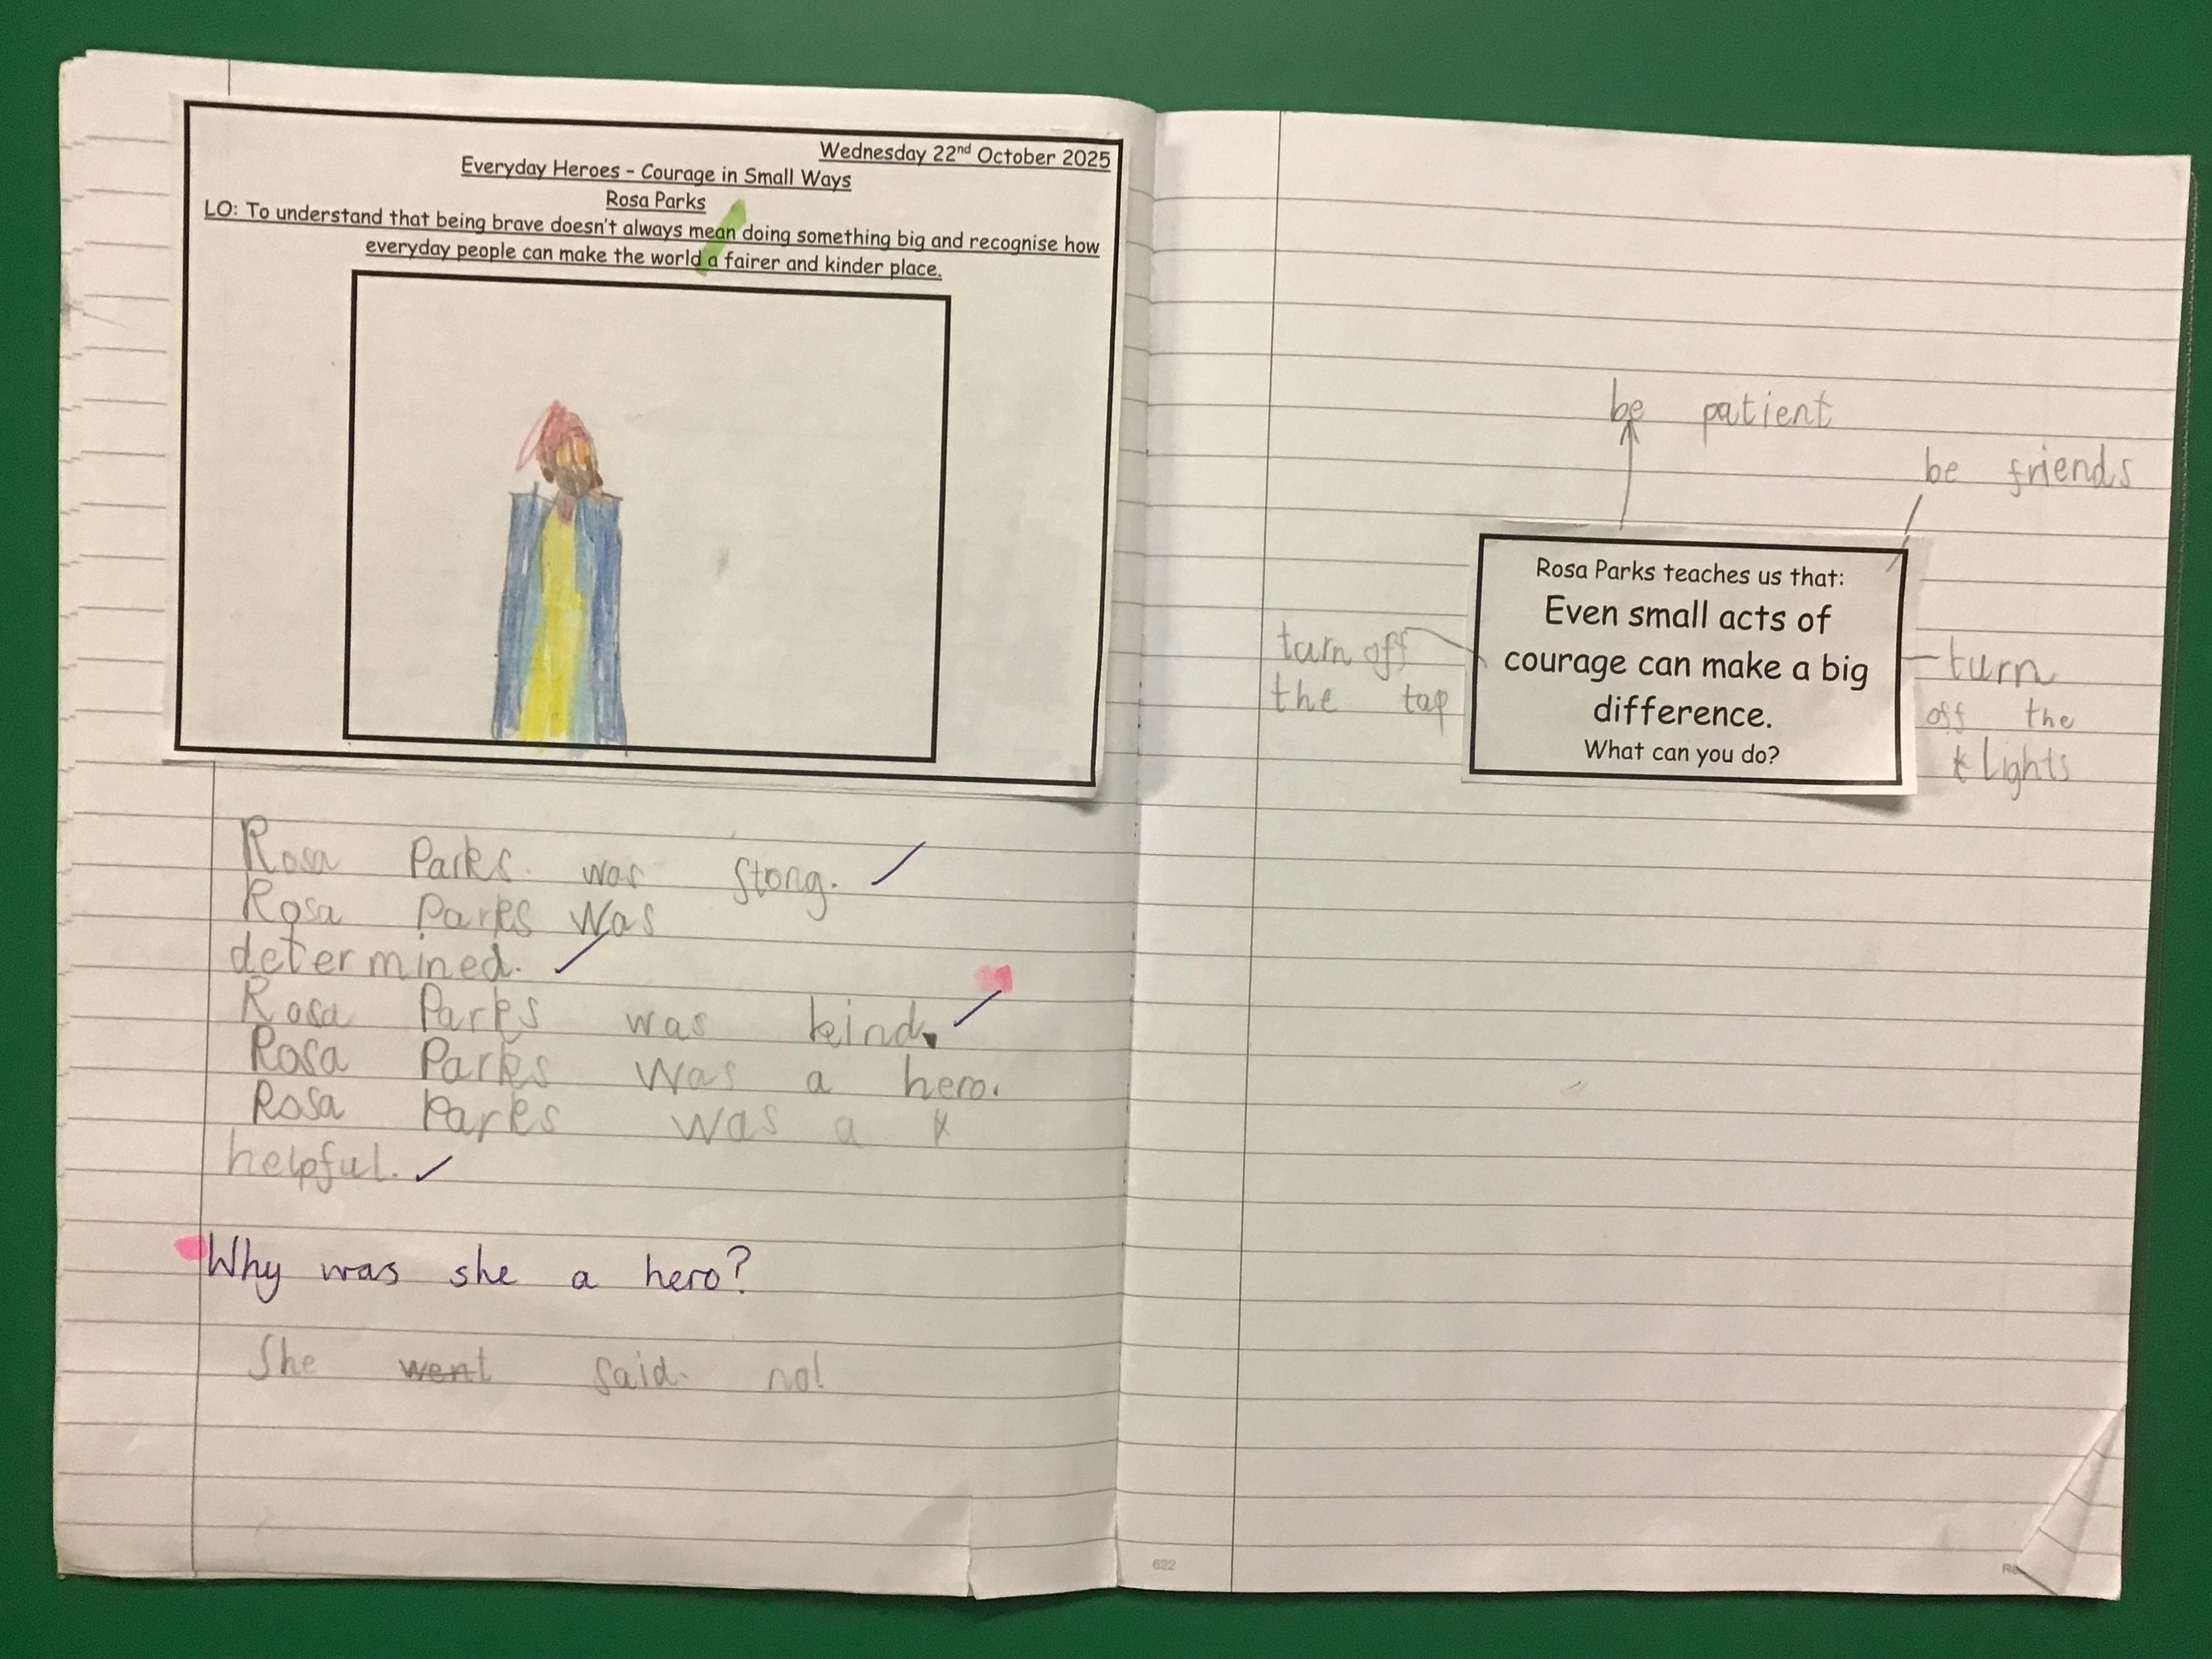 Wednesday 22nd October 2025
Everyday Heroes - Courage in Small Ways
Rosa Parks
LO: To understand that being brave doesn't always mean doing something big and recognise how
everyday people can make the world a fairer and kinder place.
Rosa Parks was stong.
Rosa Parks was
determined.
Rosa Parks was kind.
Rosa Parks was a hero.
Rosa Parks was a
helpful.
Why was she a hero?
She went said no!
622
be patient
be friends
turn off
the tap
Rosa Parks teaches us that:
Even small acts of
courage can make a big
difference.
What can you do?
turn
off the
Lights